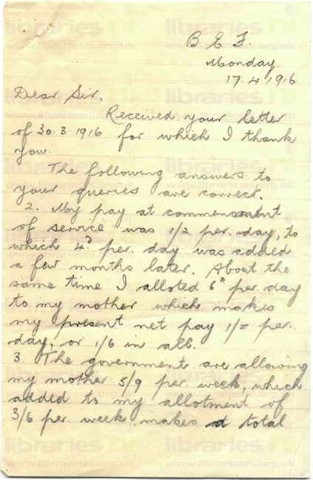 B E F
Monday
17.4.1916
Dear Sir,
Received your letter
of 30.3.1916 for which I thank
you.
The following answers to
your queries are correct.
2. My pay at commencement
of service was 1/2 per. day, to
which 4d per. day was added
a few months later. About the
same time I alloted 6d per. day
to my mother which makes
my present net pay 1/= per.
day, or 1/6 in all.
3. The governments are allowing
my mother 5/9 per. week, which
added to my allotment of
3/6 per. week. makes a total